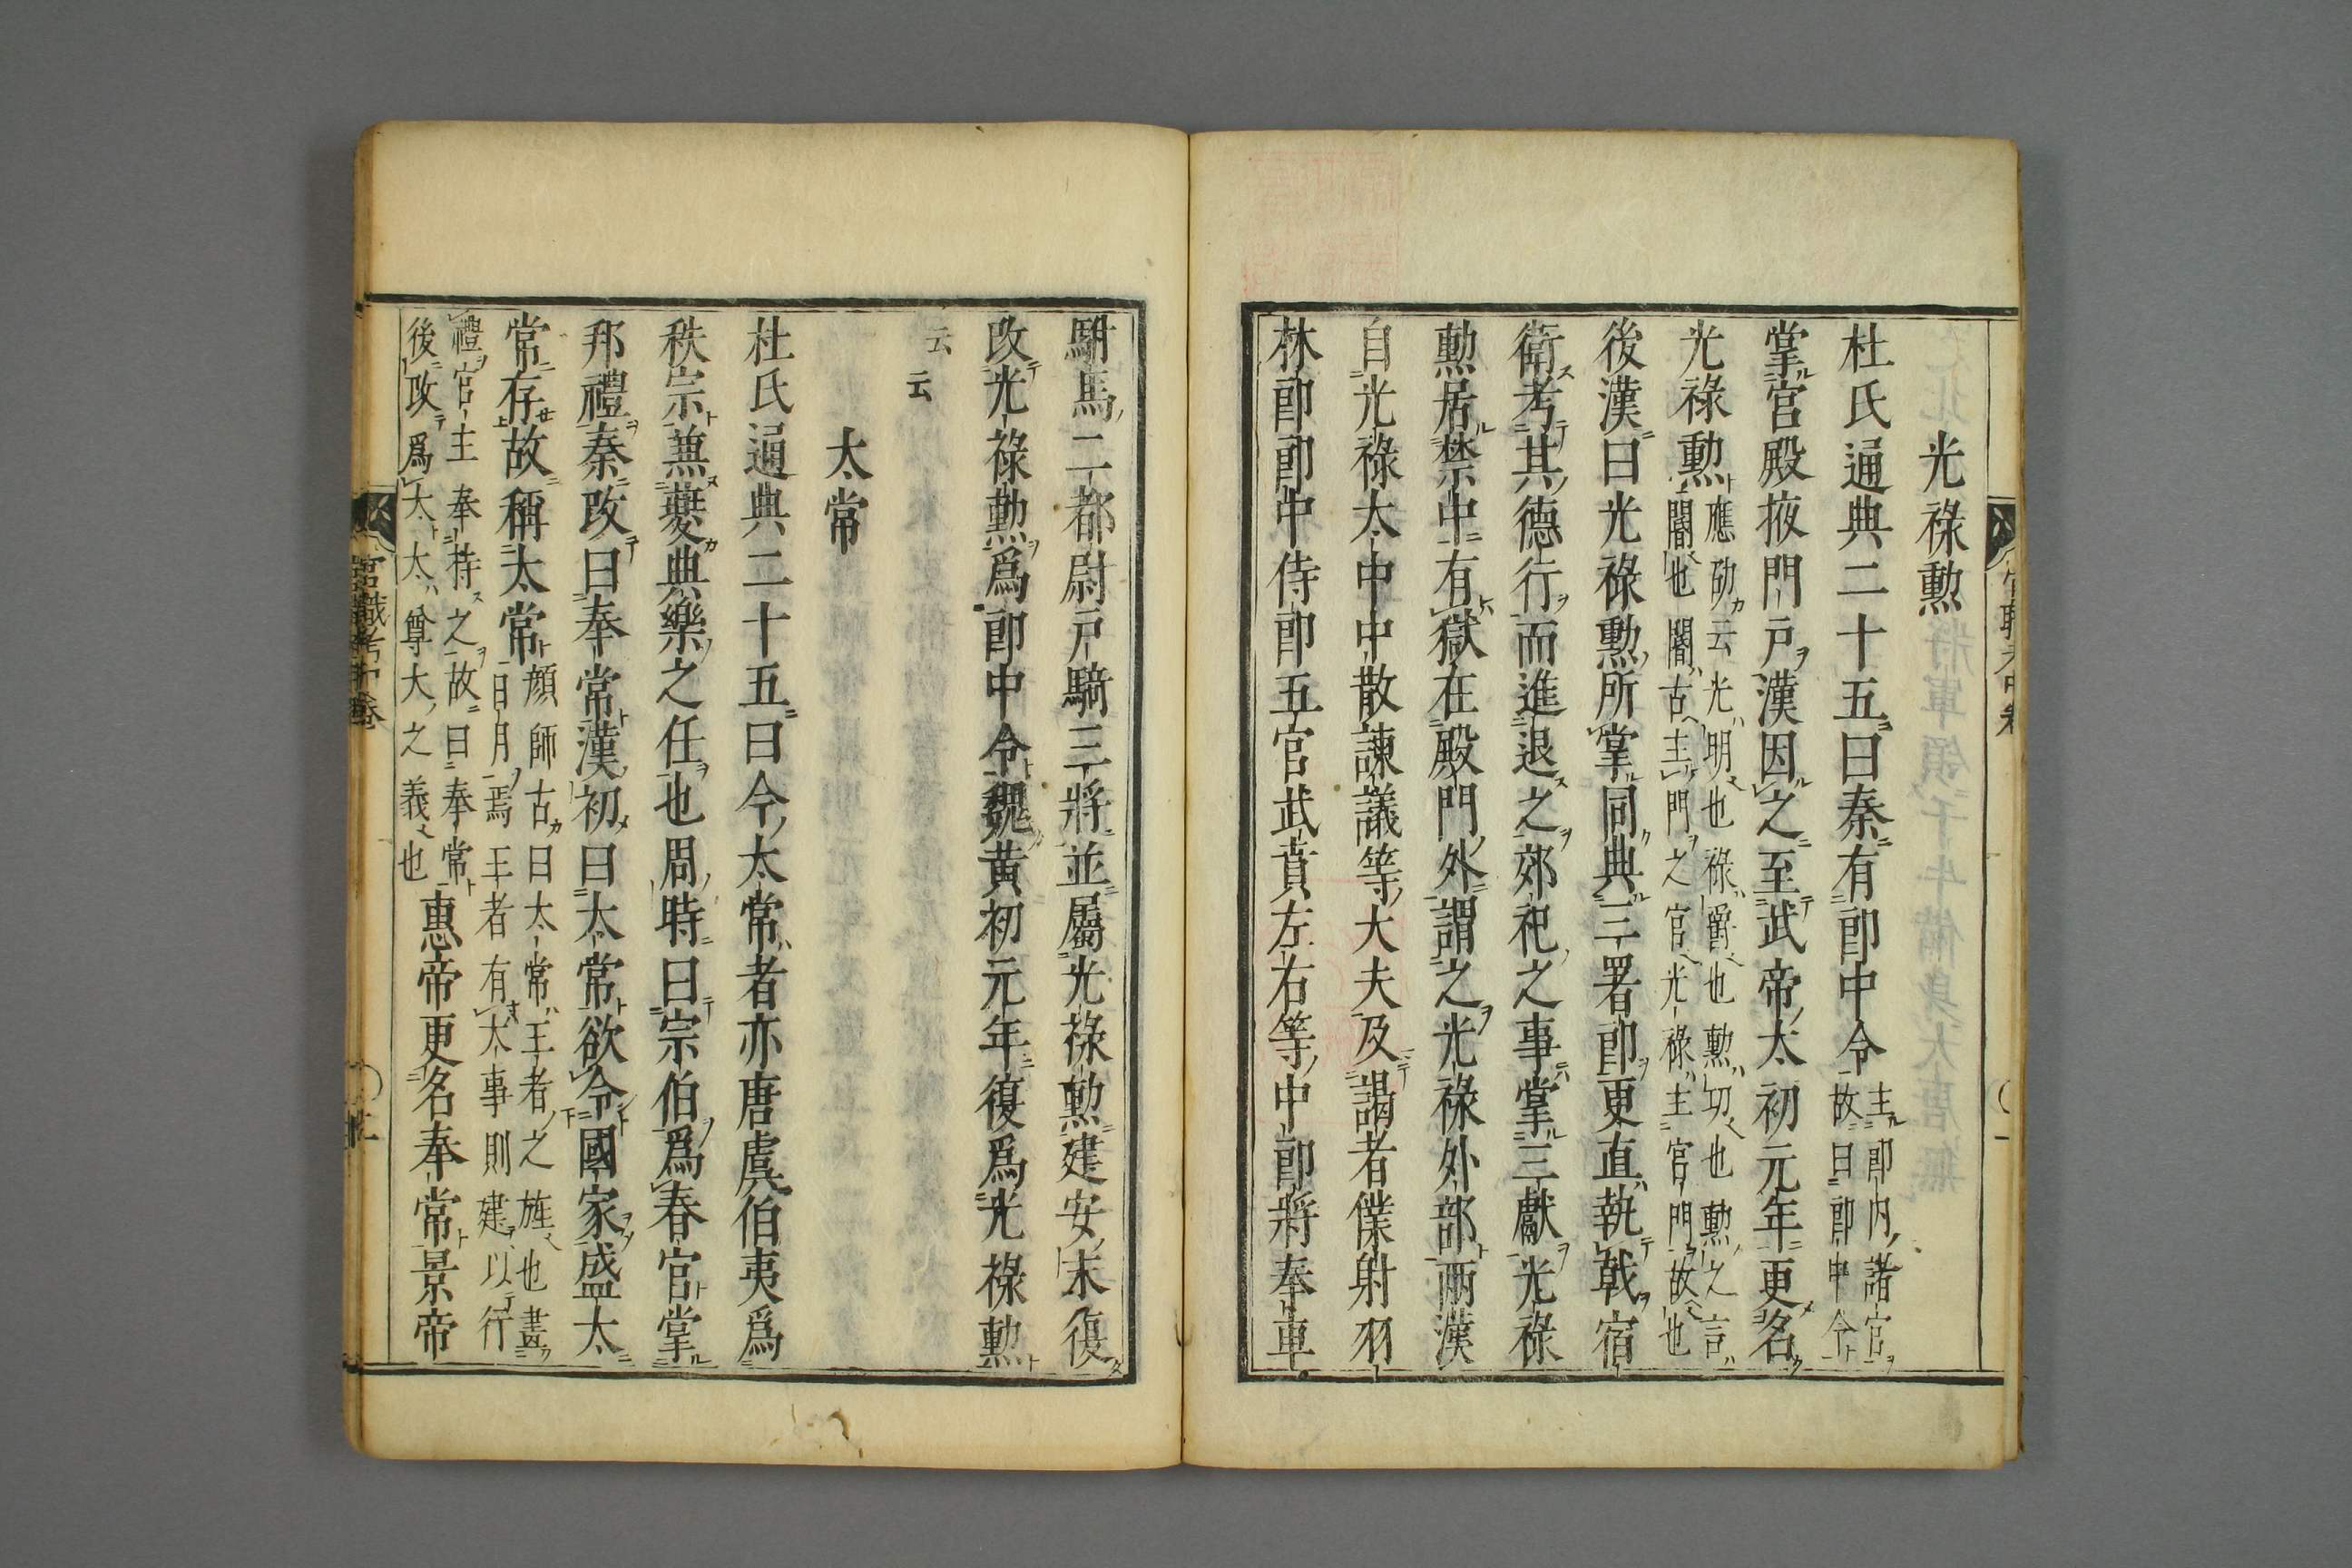 光祿勲
杜氏通典二十五曰秦有郎中令主郎内諸官故曰郎中令
掌宮殿掖門戸漢因之至武帝太初元年更名
光祿勲應劭云光明也祿爵也勲功也勲之言閽也閽古主門之官光祿主宮門故也
後漢曰光祿勲所掌同典三署郎更直執戟宿
衛考其德行而進退之郊祀之事掌三獻光祿
勲居禁中有獄在殿門外謂之光祿外部兩漢
自光祿太中中散諫議等大夫及謁者僕射羽
林郎郎中侍郎五官武賁左右等中郎將奉車
駙馬二都尉戸騎三將並屬光祿勲建安末復
改光祿勲爲郎中令魏黄初元年復爲光祿勲
云云
太常
杜氏通典二十五曰今太常者亦唐虞伯夷爲
秩宗兼夔典樂之任也周時曰宗伯爲春官掌
邦禮秦改曰奉常漢初曰太常欲令國家盛太
常存故稱太常顔師古曰太常王者之旌也畫日月焉王者有大事則建以行
禮官主奉持之故曰奉常後改爲太太尊大之義也惠帝更名奉常景帝
官職考中卷